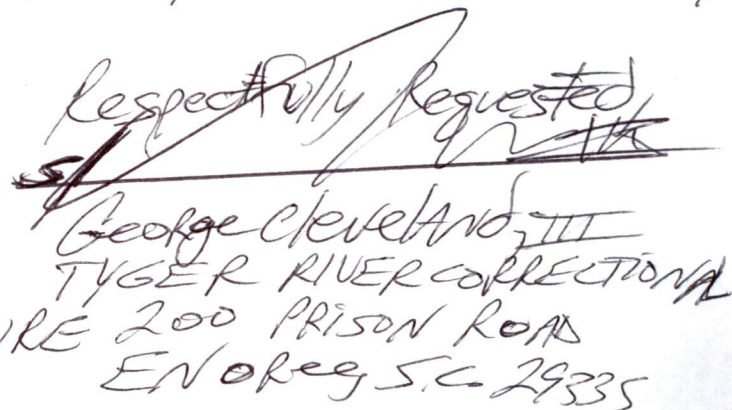 Respectfully Requested,
s/
George Cleveland, III
TYGER RIVER CORRECTIONAL
200 PRISON ROAD
ENOREE, S.C. 29335